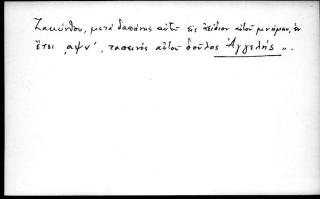 Ζακύνθου, μετά δαπάνης αὐτοῦ εἰς ἀείδιον αὐτοῦ μνήμην, ἐν
ἔτει ͵αψν´, ταπεινός αὐτοῦ δοῦλος Ἀγγελής „.